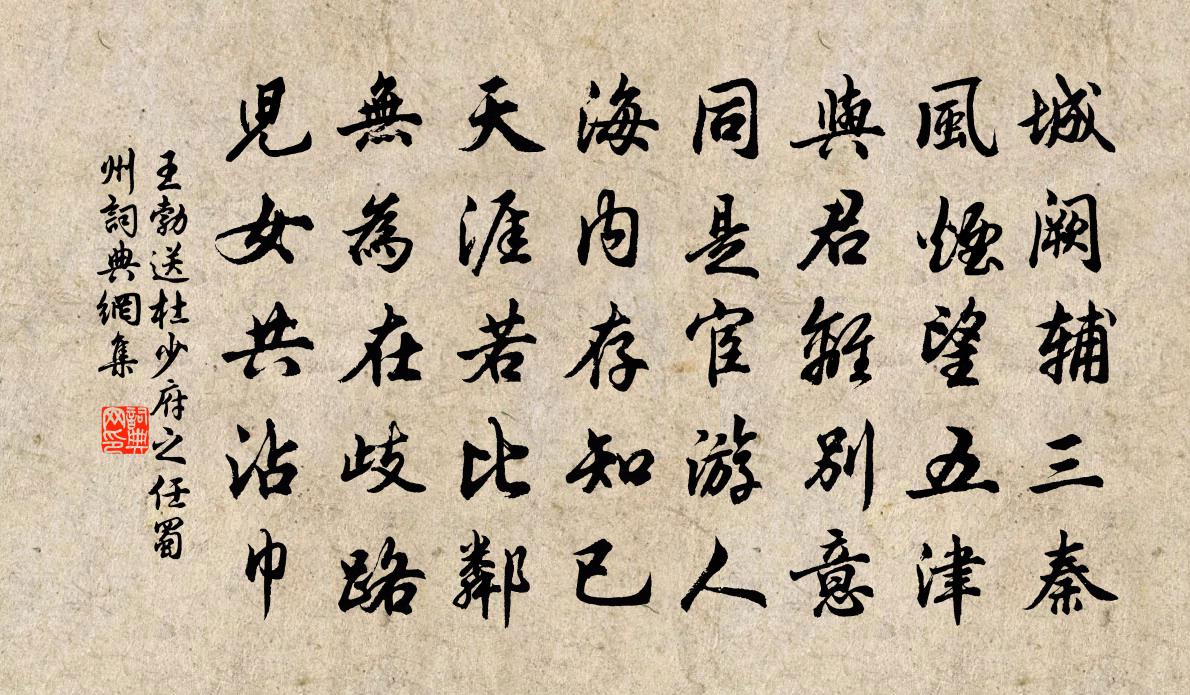 城阙辅三秦
風煙望五津
與君離别意
同是宦游人
海内存知己
天涯若比鄰
無為在歧路
児女共沾巾
王勃送杜少府之任蜀
州詞典網集
詞典网印